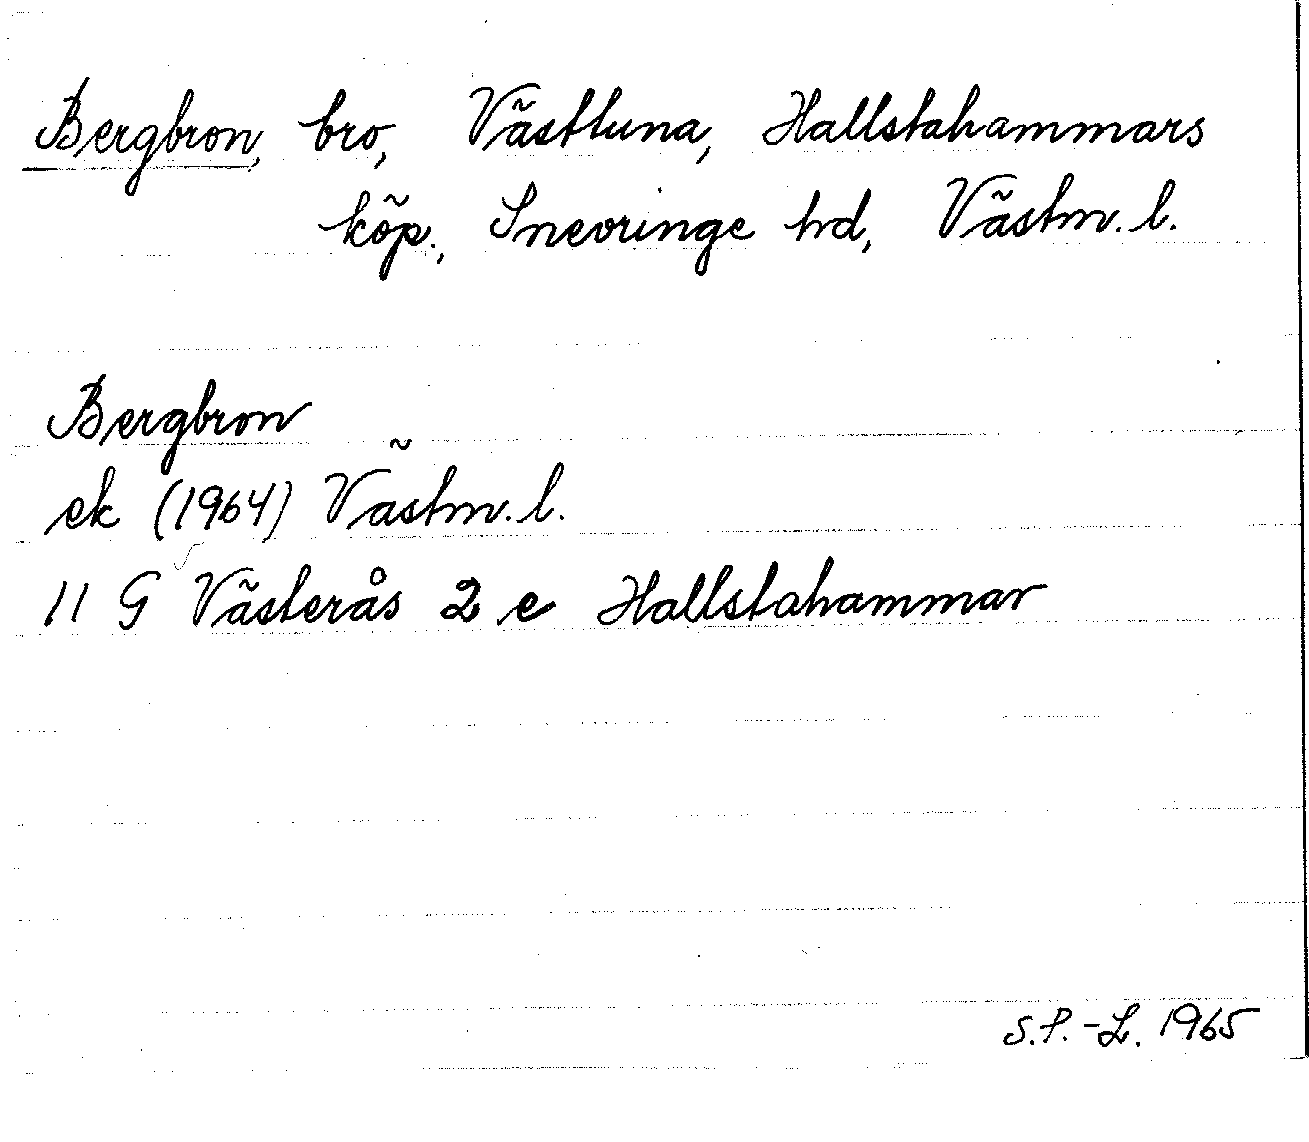 Bergbron, bro, Västtuna, Hallstahammars
köp., Snevringe hd, Västm. l.
Bergbron
ek (1964) Västm. l.
11 G Västerås 2 e Hallstahammar
S.P.-L. 1965